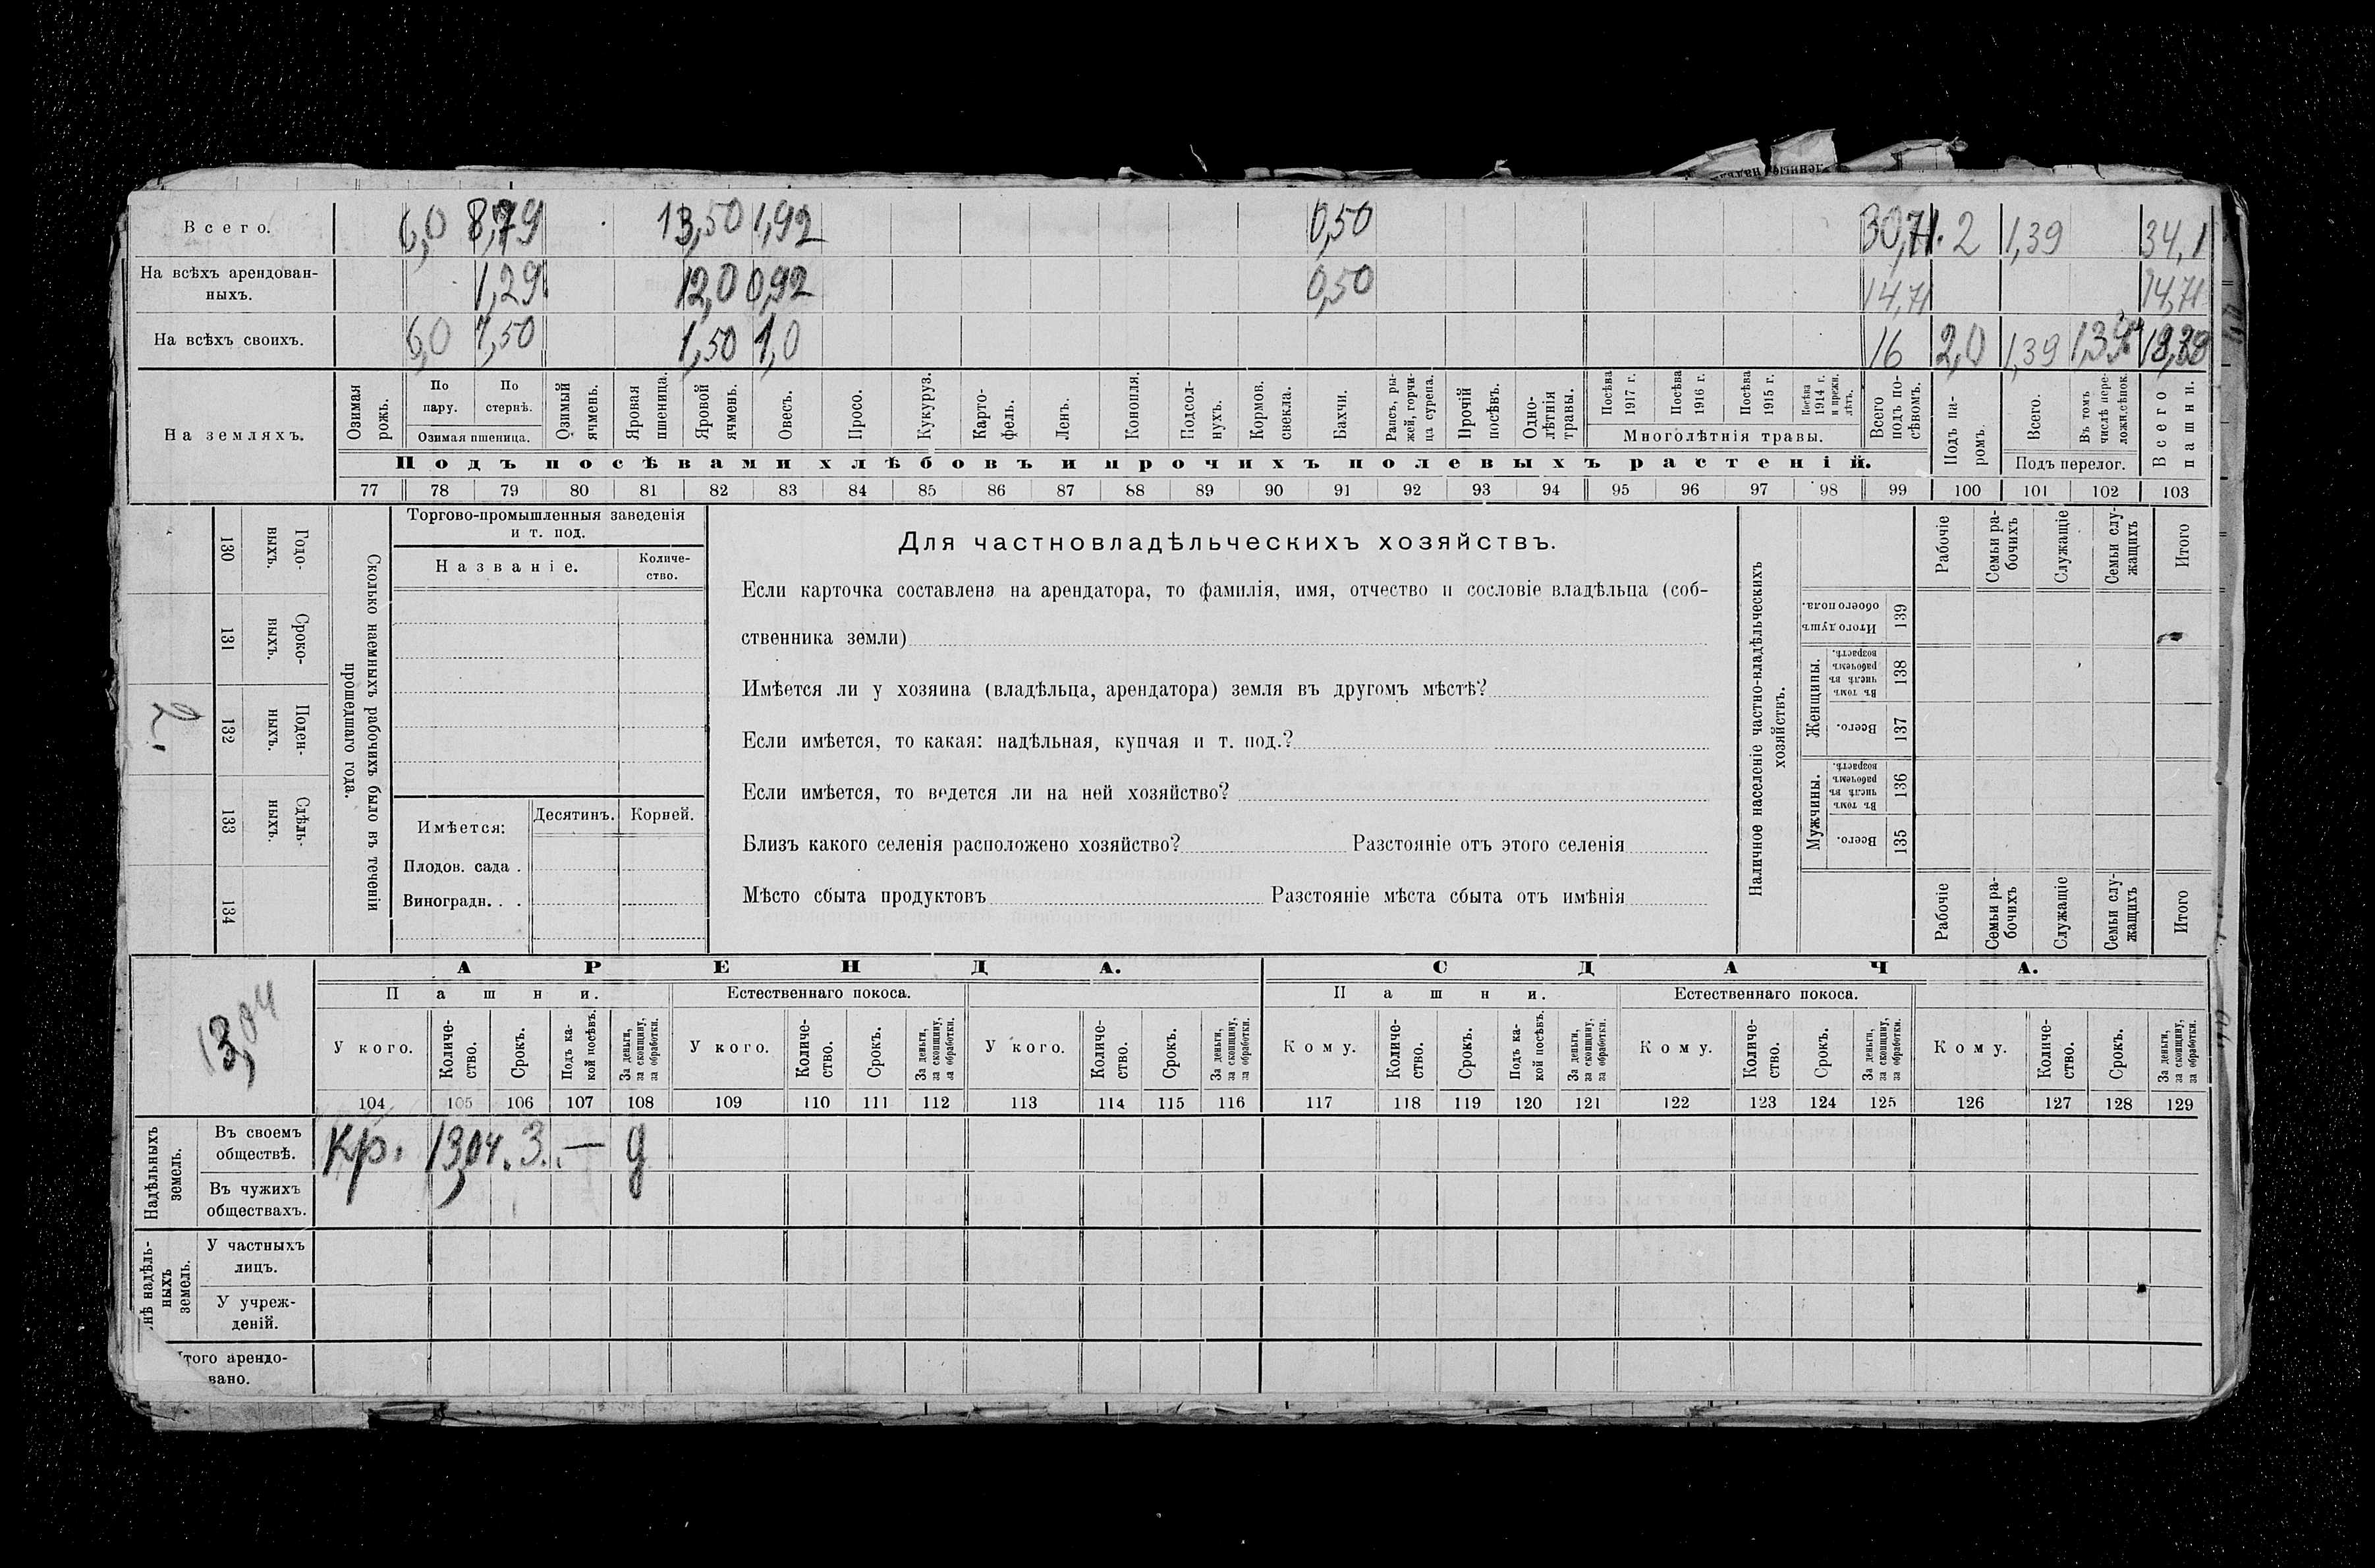 Всего. 6,0 8,79 13,50 1,92 0,50 30,71. 2 1,39 34,1
На всѣхъ арендован-
ныхъ. 1,29 12,0 0,92 0,50 14,71 14,71
На всѣхъ своихъ. 6,0 7,50 1,50 1,0 16 2,0 1,39
На земляхъ.
Озимая рожь.
По пару.
По стернѣ.
Озимая пшеница.
Озимый ячмень.
Яровая пшеница.
Яровой ячмень.
Овесъ.
Просо.
Кукуруз.
Карто-
фель.
Ленъ.
Конопля.
Подсол-
нухъ.
Кормов. свекла.
Бахчи.
Рапсъ, ры-
жей, горчи-
ца сурепа.
Прочій посѣвъ.
Одно-
лѣтнія травы.
Посѣва 1917 г.
Посѣва 1916 г.
Посѣва 1915 г.
Посѣва 1914 г. и прежн. лѣтъ.
Многолѣтнія травы.
Всего подъ по-
сѣвомъ.
Подъ па-
ромъ.
Всего.
Въ томъ числѣ пере-
ложн.сѣнок.
Подъ перелог.
Всего пашни.
Подъ посѣвами хлѣбовъ и прочихъ полевыхъ растеній.
77 78 79 80 81 82 83 84 85 86 87 88 89 90 91 92 93 94 95 96 97 98 99 100 101 102 103
2.
130 131 132 133 134
Годо-
выхъ.
Сроко-
ныхъ.
Поден-
ныхъ.
Сдѣль-
ныхъ.
Сколько наемныхъ рабочихъ было въ теченіи
прошедшаго года.
Торгово-промышленныя заведенія
и т. под.
Названіе.
Количе-
ство.
Имѣется:
Десятинъ. Корней.
Плодов. сада .
Виноградн. . .
Для частновладѣльческихъ хозяйствъ.
Если карточка составлена на арендатора, то фамилія, имя, отчество и сословіе владѣльца (соб-
ственника земли)
Имѣется ли у хозяина (владѣльца, арендатора) земля въ другомъ мѣстѣ?
Если имѣется, то какая: надѣльная, купчая и т. под.?
Если имѣется, то ведется ли на ней хозяйство?
Близъ какого селенія расположено хозяйство? Разстояніе отъ этого селенія
Мѣсто сбыта продуктовъ Разстояніе мѣста сбыта отъ имѣнія
Наличное населеніе частно-владѣльческихъ
хозяйствъ.
Рабочіе
Семьи ра-
бочихъ
Служащіе
Семьи слу-
жащихъ
Итого
Итого душъ обоего пола. 139
Женщины.
Въ томъ числѣ въ рабочемъ возрастѣ. 138
Всего. 137
Мужчины.
Въ томъ числѣ въ рабочемъ возрастѣ. 136
Всего. 135
Рабочіе
Семьи ра-
бочихъ
Служащіе
Семьи слу-
жащихъ
Итого
13,04
АРЕНДА. СДАЧА.
Пашни. Естественнаго покоса. Пашни. Естественнаго покоса.
У кого.
Количе-
ство.
Срокъ.
Подъ ка-
кой посѣвъ.
За деньги,
за скопщину,
за обработки.
У кого.
Количе-
ство.
Срокъ.
За деньги,
за скопщину,
за обработки.
У кого.
Количе-
ство.
Срокъ.
За деньги,
за скопщину,
за обработки.
Кому.
Количе-
ство.
Срокъ.
Подъ ка-
кой посѣвъ.
За деньги,
за скопщину,
за обработки.
Кому.
Количе-
ство.
Срокъ.
За деньги,
за скопщину,
за обработки.
Кому.
Количе-
ство.
Срокъ.
За деньги,
за скопщину,
за обработки.
104 105 106 107 108 109 110 111 112 113 114 115 116 117 118 119 120 121 122 123 124 125 126 127 128 129
Надѣльныхъ
земель.
Въ своемъ
обществѣ. Кр. 13,04. 3. — д
Въ чужихъ
обществахъ.
нѣ надѣль-
ныхъ
земель.
У частныхъ
лицъ.
У учреж-
деній.
того арендо-
вано.